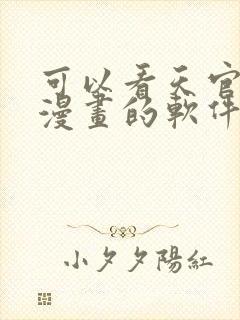 可以看天官
漫畫的軟件
小夕夕陽紅